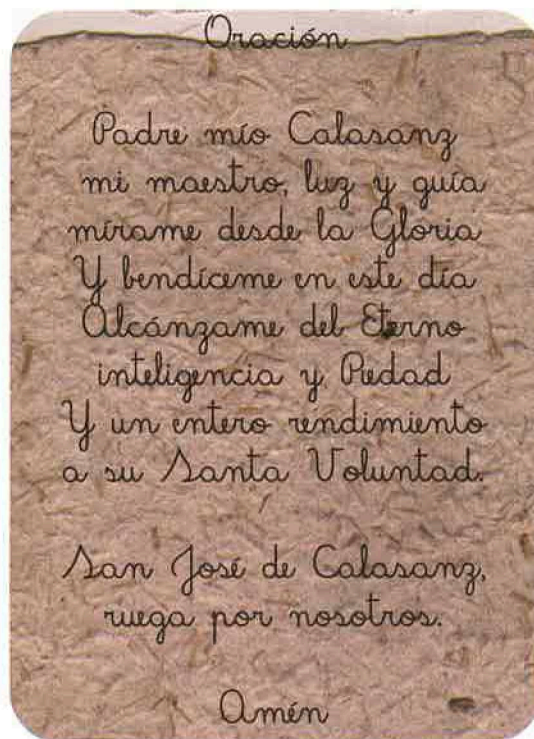 Oración
Padre mío Calasanz
mi maestro, luz y guía
mírame desde la Gloria
Y bendíceme en este día
Alcánzame del Eterno
inteligencia y Piedad
Y un entero rendimiento
a su Santa Voluntad.
San José de Calasanz,
ruega por nosotros.
Amén